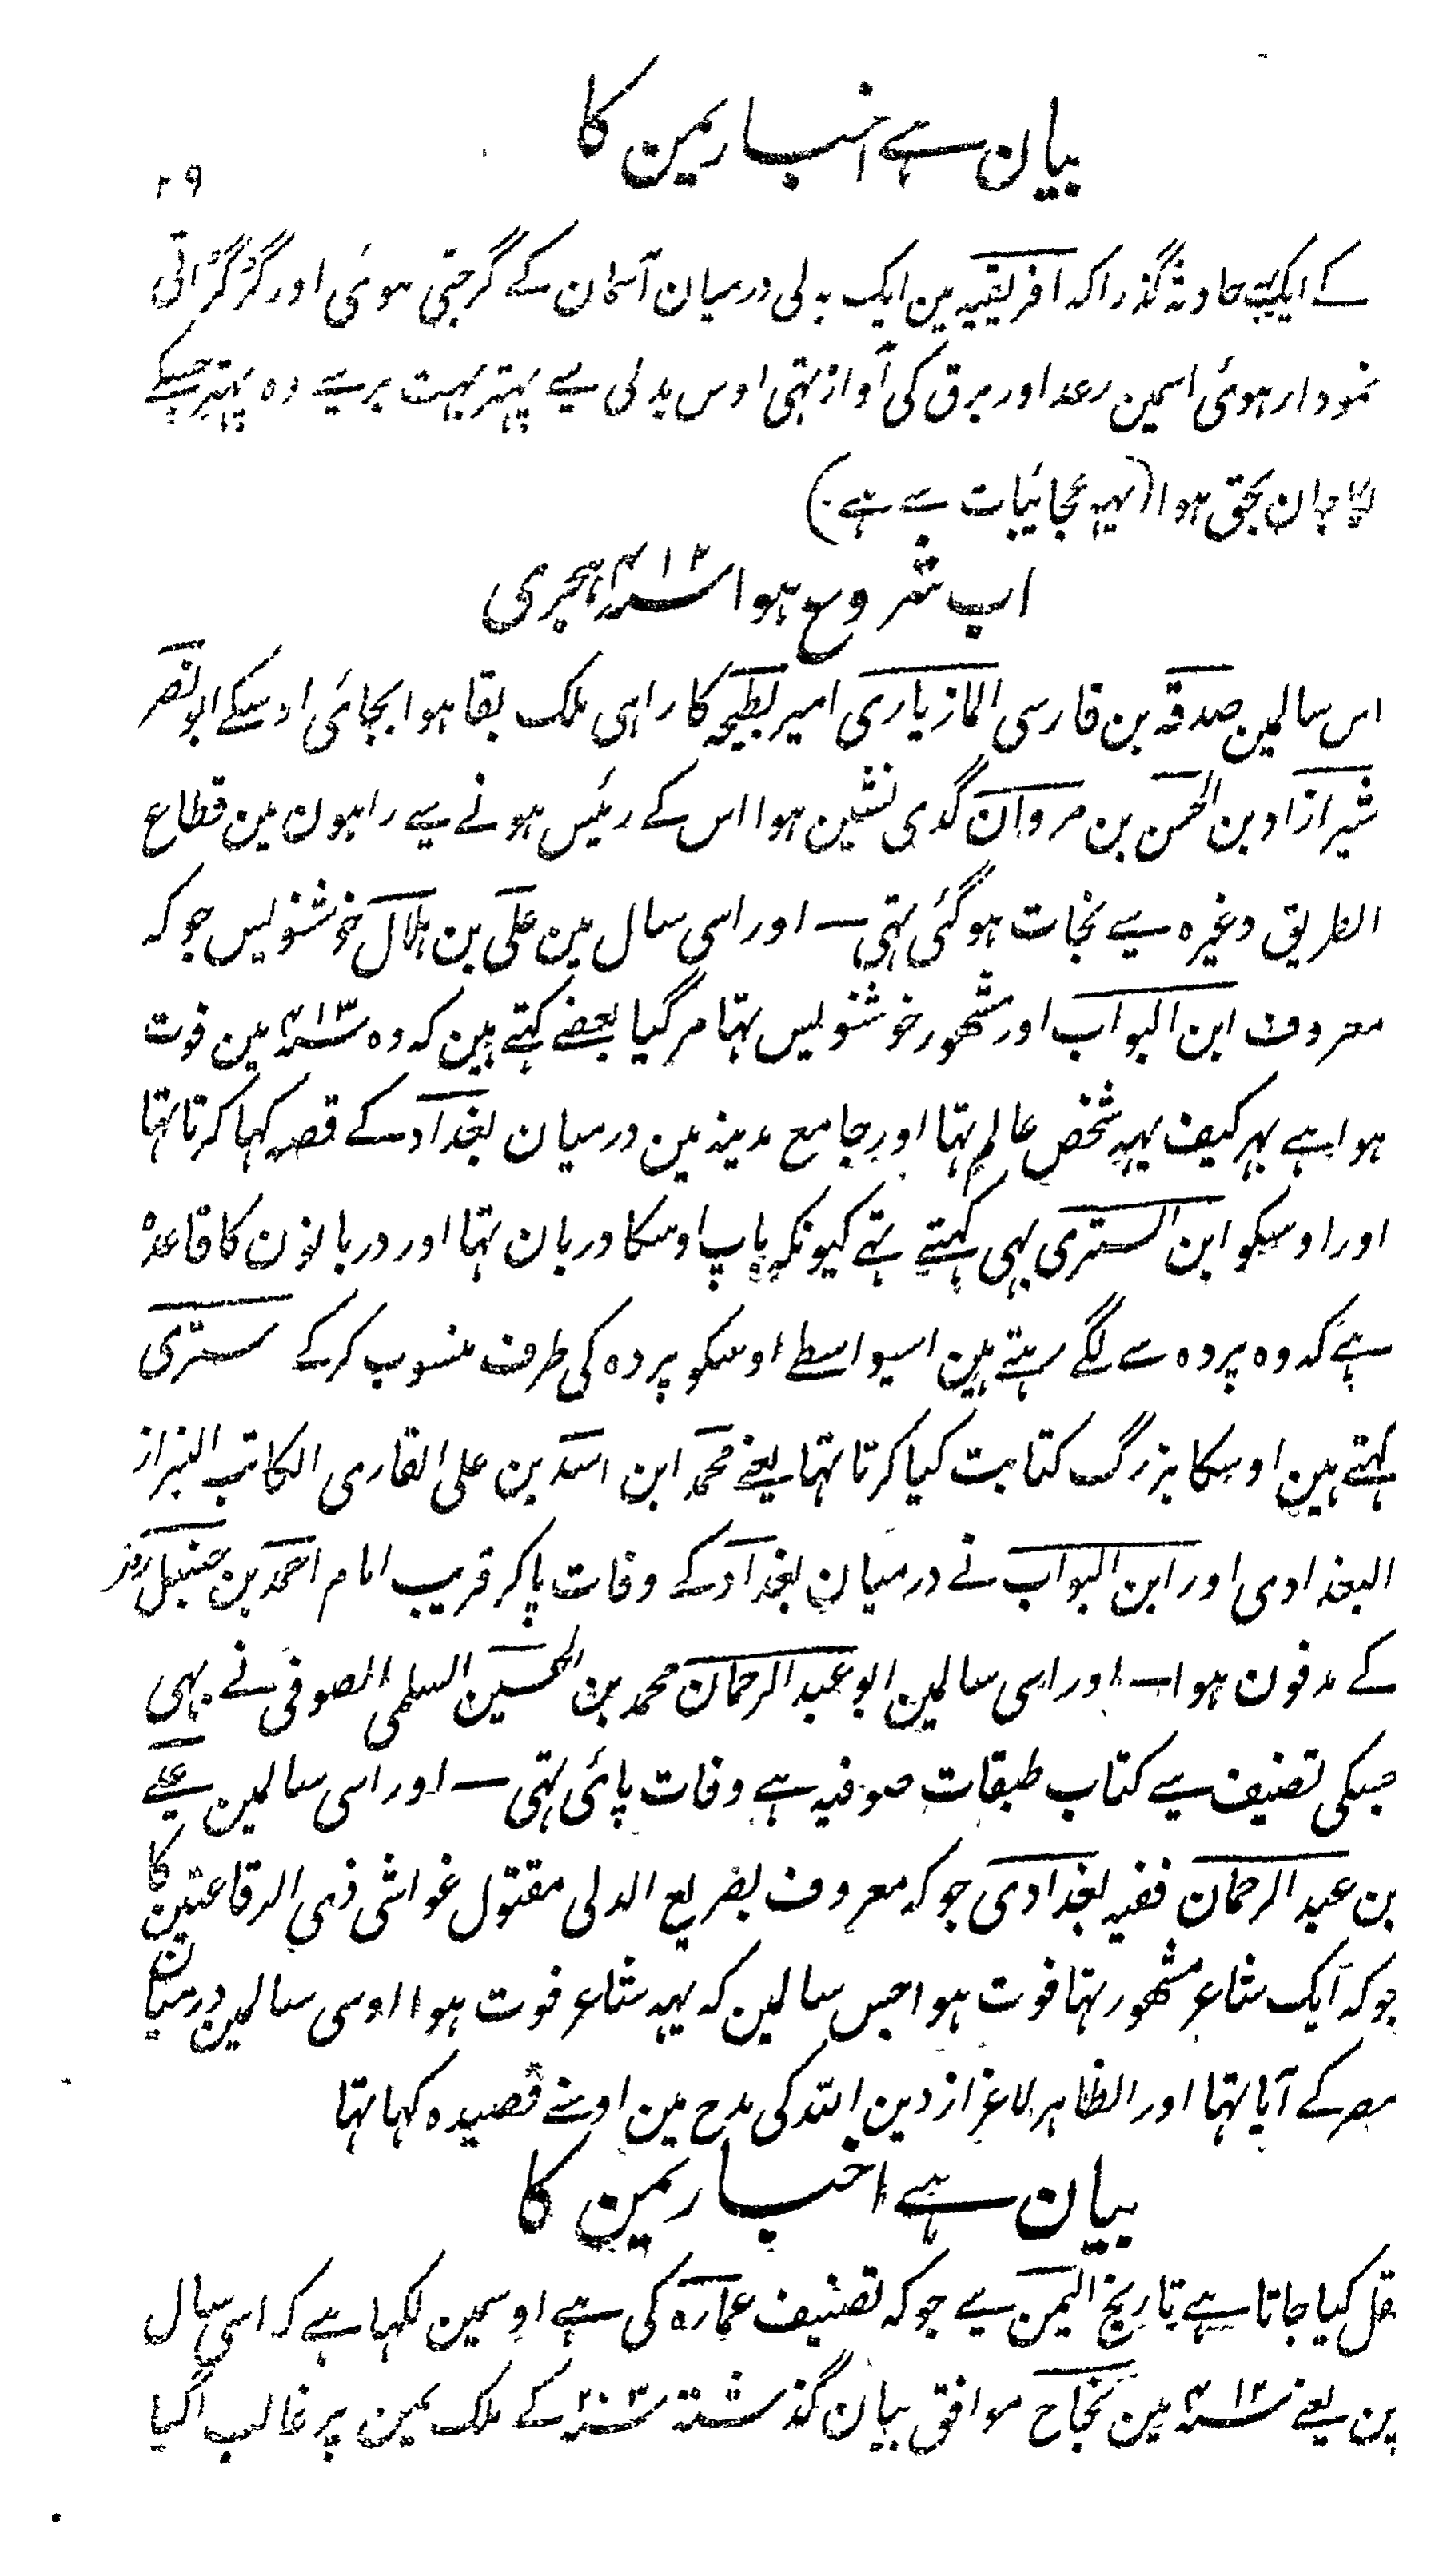 بیان ہے اخبار یمن کا
۲۹
کے ایک یہہ حادثہ گذرا کہ افریقیہ مین ایک بدلی درمیان آسمان کے گرجتی ہوئی اور گڑگڑاتی
نمودار ہوئی اسمین رعد اور برق کی آواز تہی اوس بدلی سے پتہر بہت برسے وہ پتہر جسکے
لگا جان بحق ہوا (یہہ عجائبات سے ہے۔)
اب شروع ہوا سنہ ۴۱۲ ہجری
اس سالمین صدقہ بن فارسی المازیاری امیر بطیحہ کا راہی ملک بقا ہوا بجائی اوسکے ابو نصر
شیرازاد بن الحسن بن مروان گدی نشین ہوا اس کے رئیس ہونے سے راہون مین قطاع
الطریق وغیرہ سے نجات ہوگئی تہی ۔ اور اسی سال مین علی بن ہلال خوشنویس جو کہ
معروف ابن البواب اور مشہور خوشنویس تہا مر گیا بعضے کہتے ہین کہ وہ سنہ ۴۱۳ مین فوت
ہوا ہے بہر کیف یہہ شخص عالم تہا اور جامع مدینہ مین درمیان بغداد کے قصہ کہا کرتا تہا
اور اوسکو ابن الستری بہی کہتے تہے کیونکہ باپ اوسکا دربان تہا اور دربانون کا قاعدہ
ہے کہ وہ پردہ سے لگے رہتے ہین اسیواسطے اوسکو پردہ کی طرف منسوب کرکے ستری
کہتے ہین اوسکا بزرگ کتابت کیا کرتا تہا یعنے محمد ابن اسد بن علی القاری الکاتب البزاز
البغدادی اور ابن البواب نے درمیان بغداد کے وفات پاکر قریب امام احمد بن حنبل رض
کے مدفون ہوا ۔ اور اسی سالمین ابو عبد الرحمان محمد بن الحسین السلمی الصوفی نے بہی
جسکی تصنیف سے کتاب طبقات صوفیہ ہے وفات پائی تہی ۔ اور اسی سالمین علی
بن عبد الرحمان فقیہ بغدادی جو کہ معروف بضریع الدلی مقتول غواشی ذی الرقاعتین کا
جو کہ ایک شاعر مشہور تہا فوت ہوا جس سالمین کہ یہہ شاعر فوت ہوا اوسی سالمین درمیان
مصر کے آیا تہا اور الظاہر لاعزاز دین اللہ کی مدح مین اوسنے قصیدہ کہا تہا
بیان ہے اخبار یمن کا
نقل کیا جاتا ہے تاریخ الیمن سے جو کہ تصنیف عمارہ کی ہے اوسمین لکہا ہے کہ اسی سال
مین یعنے سنہ ۴۱۲ مین نجاح موافق بیان گذشتہ سنہ ۲۰۳ کے ملک یمن پر غالب آگیا